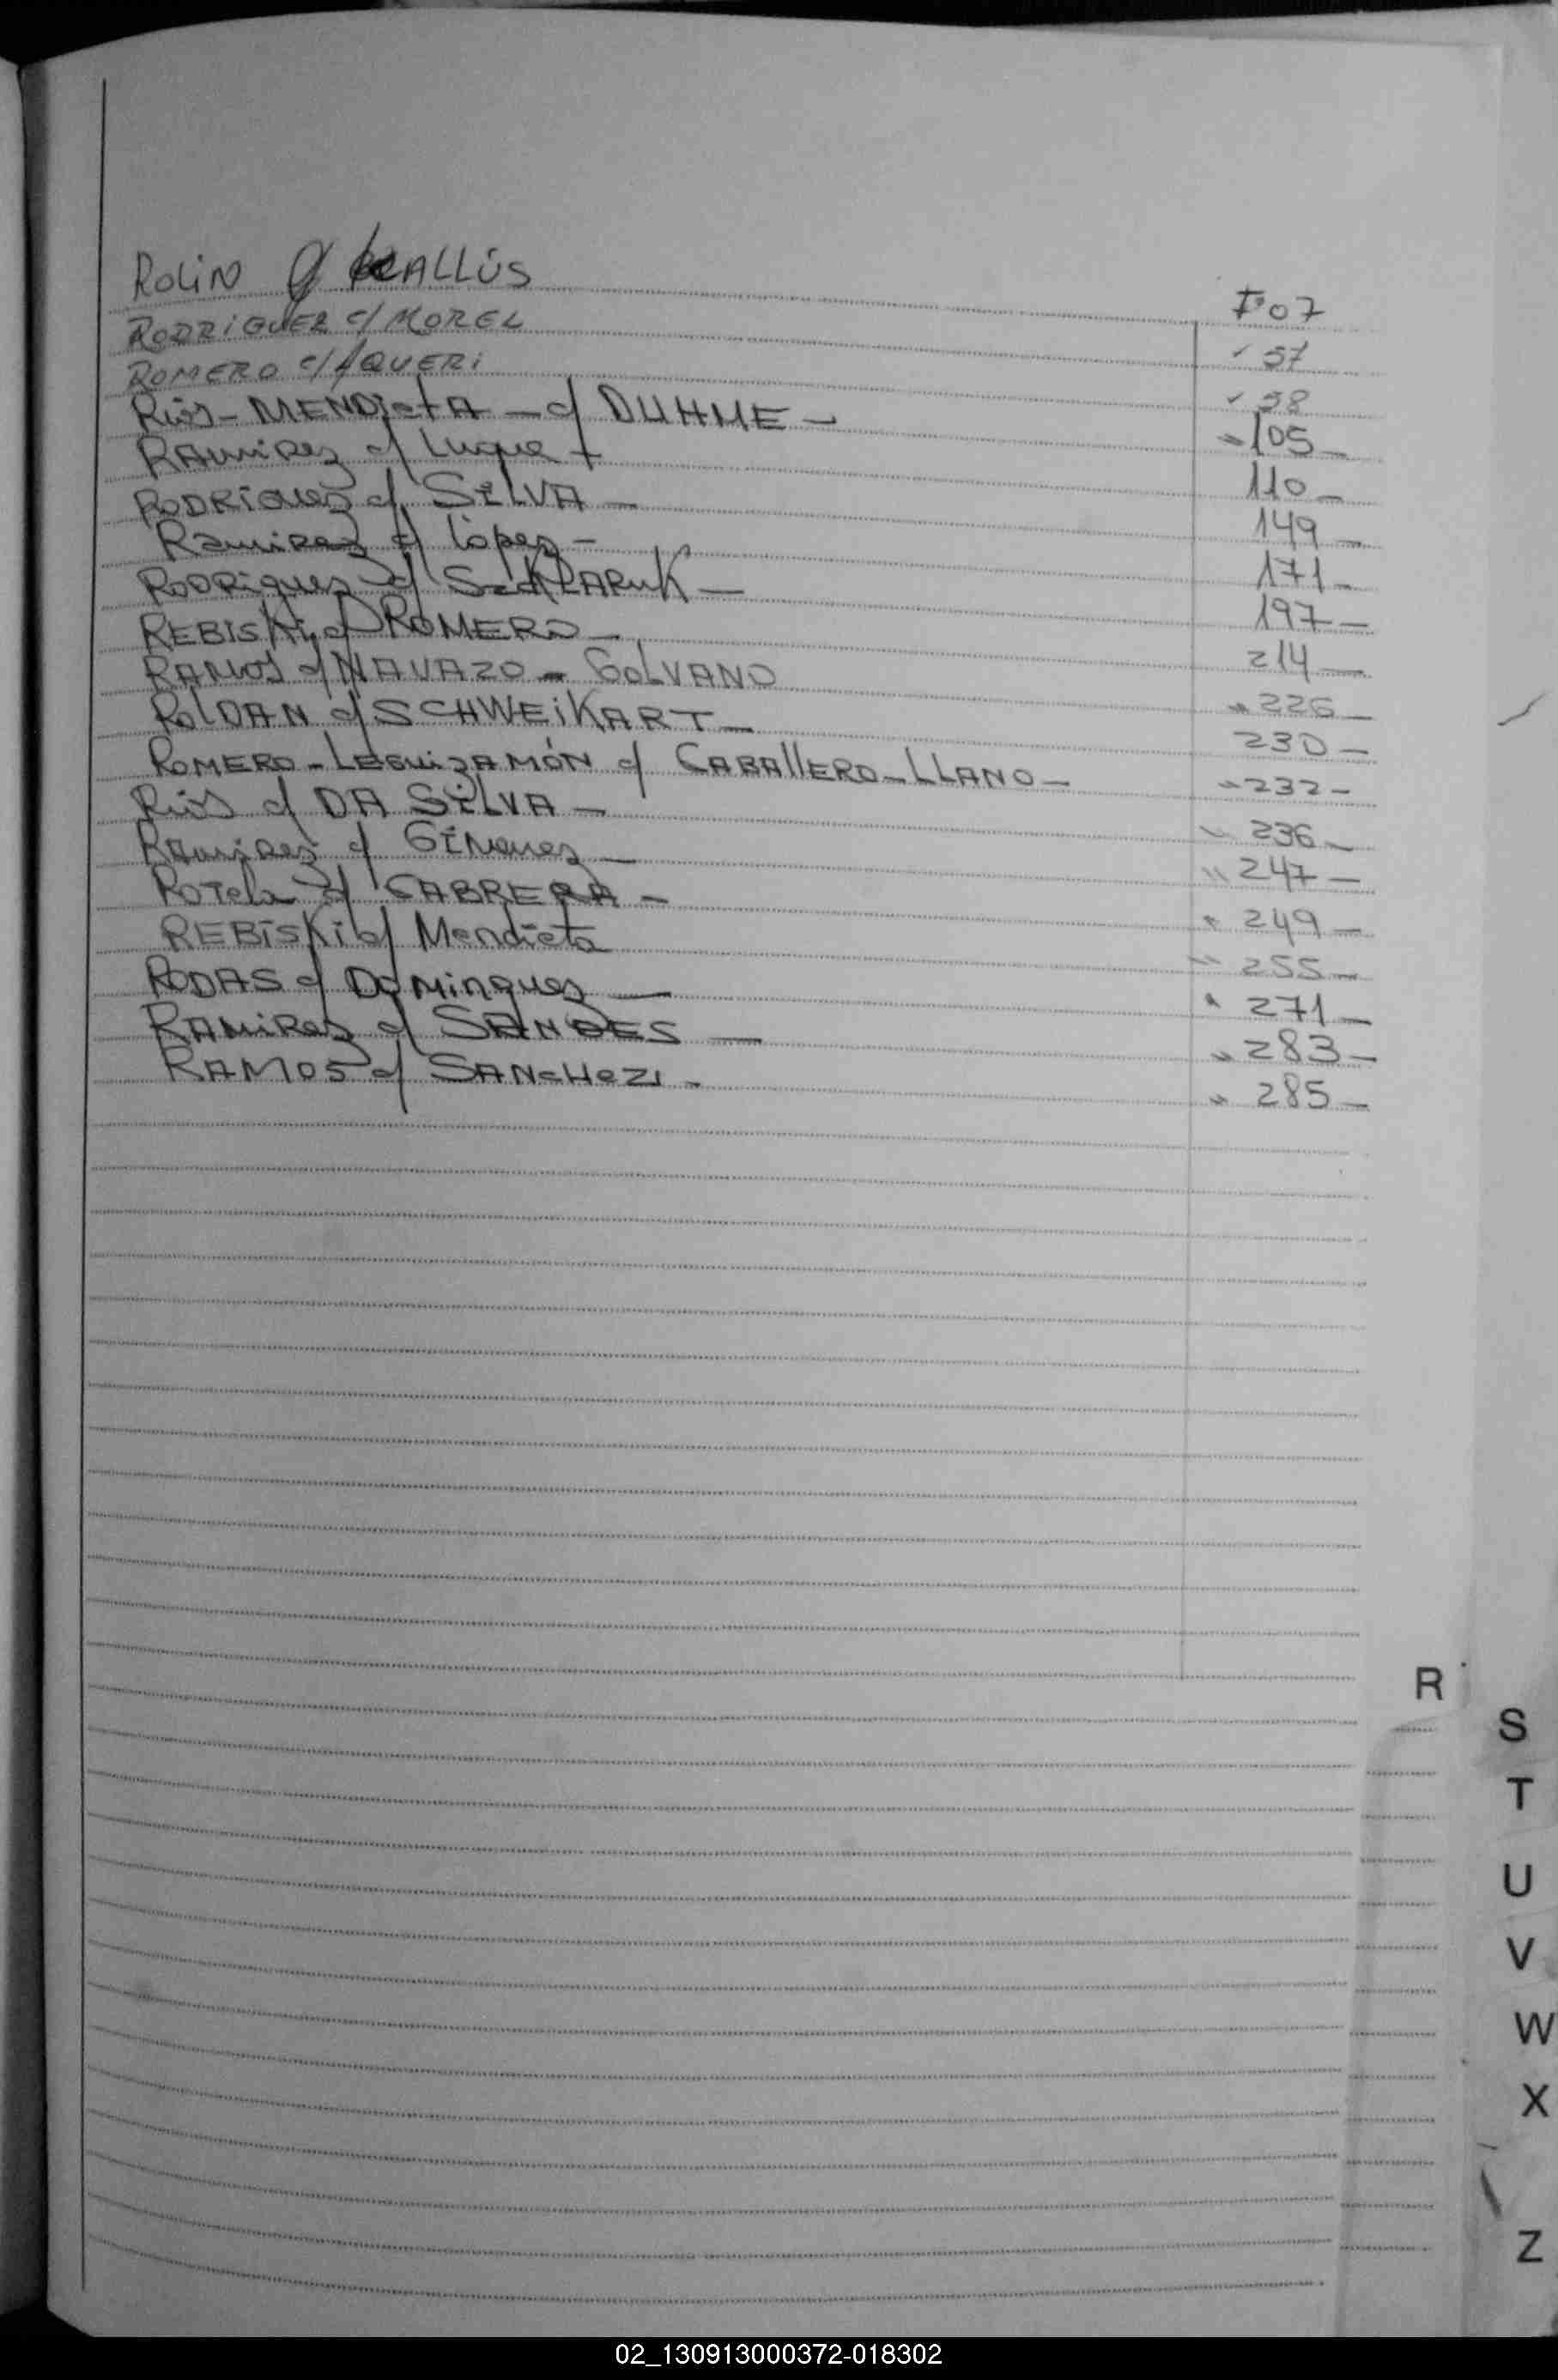 ROLIN c/ KALLÚS Fº 07
RODRIGUEZ c/ MOREL " 57
ROMERO c/ AQUERI " 58
Ríos - MENDIETA - c/ DUHME - " 105 -
RAMIREZ c/ Luque + 110 -
RODRIGUEZ c/ SILVA - 149 -
Ramirez c/ López - 171 -
RODRIGUEZ c/ SZCKLARUK - 197 -
REBISKI c/ ROMERO - 214 -
RAMOS c/ NAVAZO - GOLVANO " 226 -
ROLDAN c/ SCHWEIKART - 230 -
ROMERO - LEGUIZAMÓN c/ CABALLERO - LLANO - " 232 -
Ríos c/ DA SILVA - " 236 -
RAMIREZ c/ GIMENEZ - " 247 -
ROTELA c/ CABRERA - " 249 -
REBISKI c/ Mendieta " 255 -
RODAS c/ DOMINGUEZ - " 271 -
RAMIREZ c/ SANDES - " 283 -
RAMOS c/ SANCHEZ - " 285 -
R
S
T
U
V
W
X
Z
02_130913000372-018302